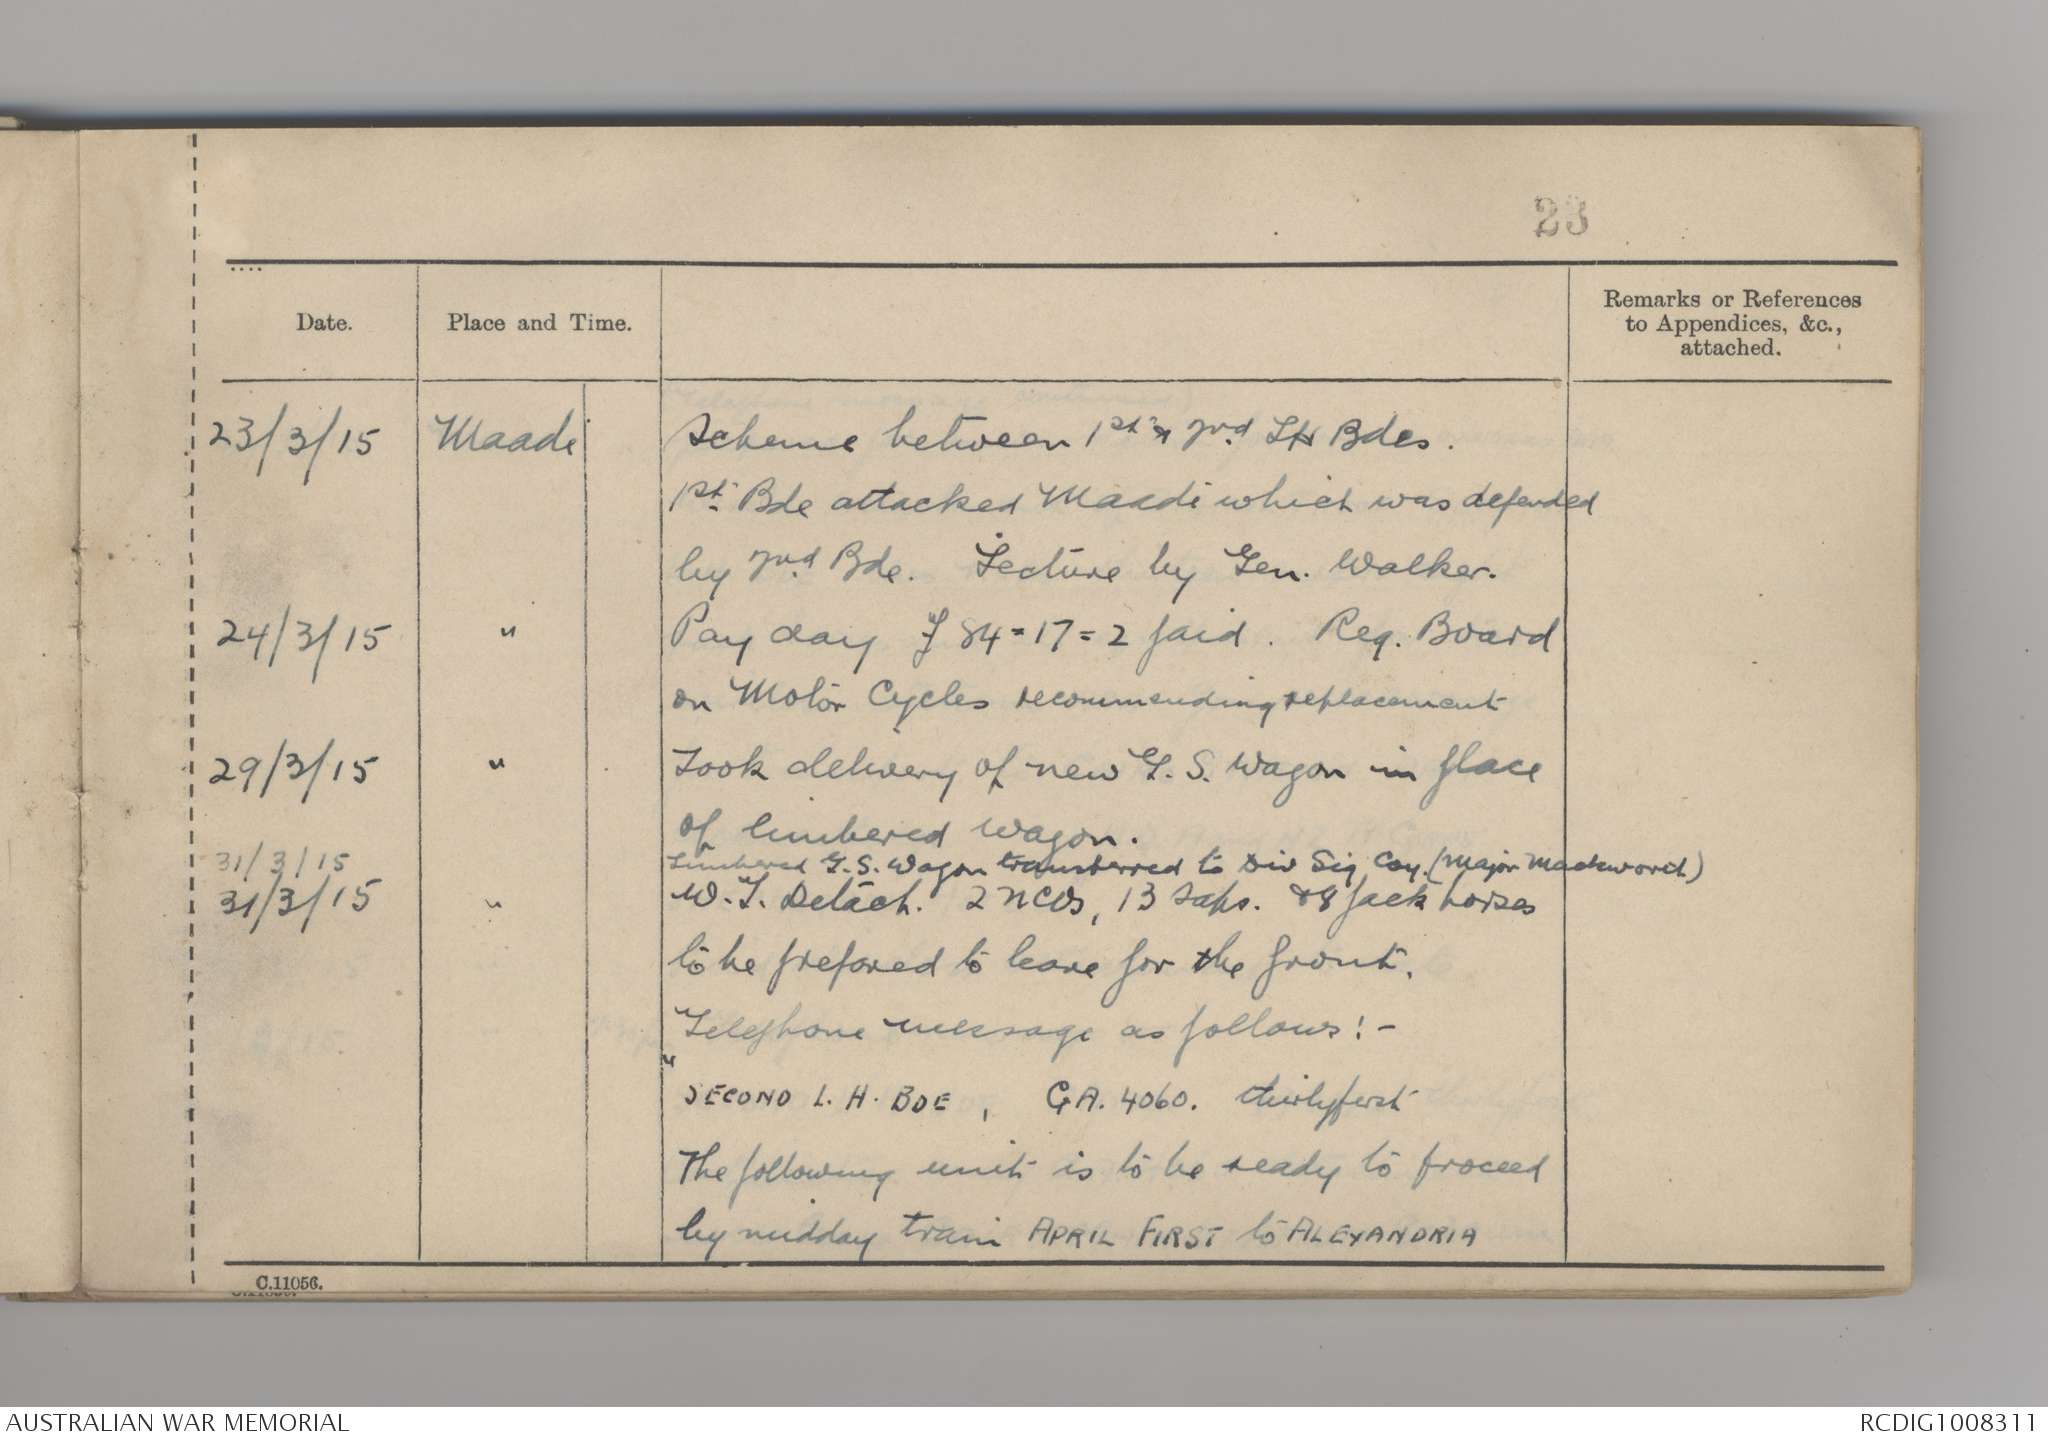 23
Date.
Place and Time.
Remarks or References
to Appendices, &c.,
attached.
23/3/15 Maadi Scheme between 1st & 2nd LH Bdes.
1st Bde attacked Maadi which was defended
by 2nd Bde. Lecture by Gen. Walker.
24/3/15 " Pay day £ 84=17=2 paid. Reg. Board
on Motor Cycles recommending replacement
29/3/15 " Took delivery of new G.S. Wagon in place
of limbered wagon.
31/3/15 Limbered G.S. Wagon transferred to Div Sig Coy. (Major Mackworth)
31/3/15 " W.T. Detach. 2 NCOs, 13 Saps. & 8 pack horses
to be prepared to leave for the front.
Telephone message as follows:-
"SECOND L.H. BDE, GA. 4060. thirtyfirst
The following unit is to be ready to proceed
by midday train APRIL FIRST to ALEXANDRIA
C.11056.
AUSTRALIAN WAR MEMORIAL
RCDIG1008311